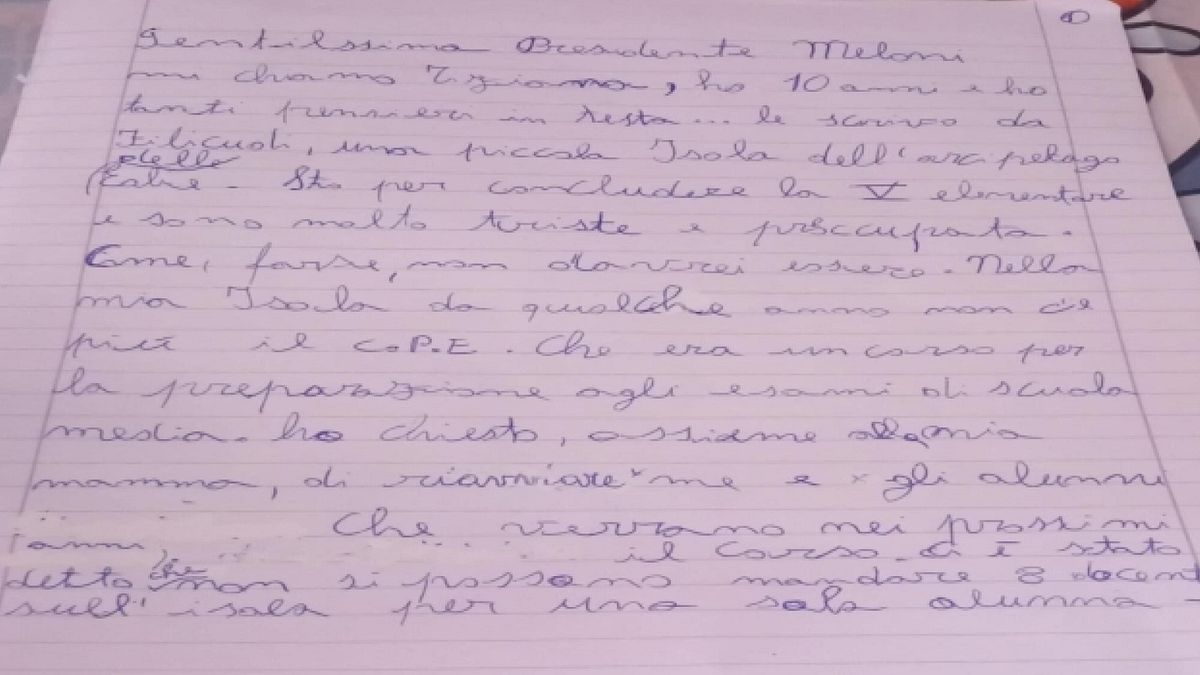 1
Gentilssima Presidente Meloni
mi chiamo Tiziana, ho 10 anni e ho
tanti pensieri in testa... le scrivo da
Filicudi, una piccola Isola dell'arcipelago
delle
Eolie. Sto per concludere la V elementare
e sono molto triste e preoccupata.
Come, forse, non dovrei essere. Nella
mia Isola da qualche anno non c'è
più il C.P.E. Che era un corso per
la preparazione agli esami di scuola
media. ho chiesto, assieme alla mia
mamma, di riavviare x me e x gli alunni
che verrano nei prossimi
anni, il corso. Ci è stato
detto che non si possono mandare 8 docenti
sull'isola per una sola alunna -